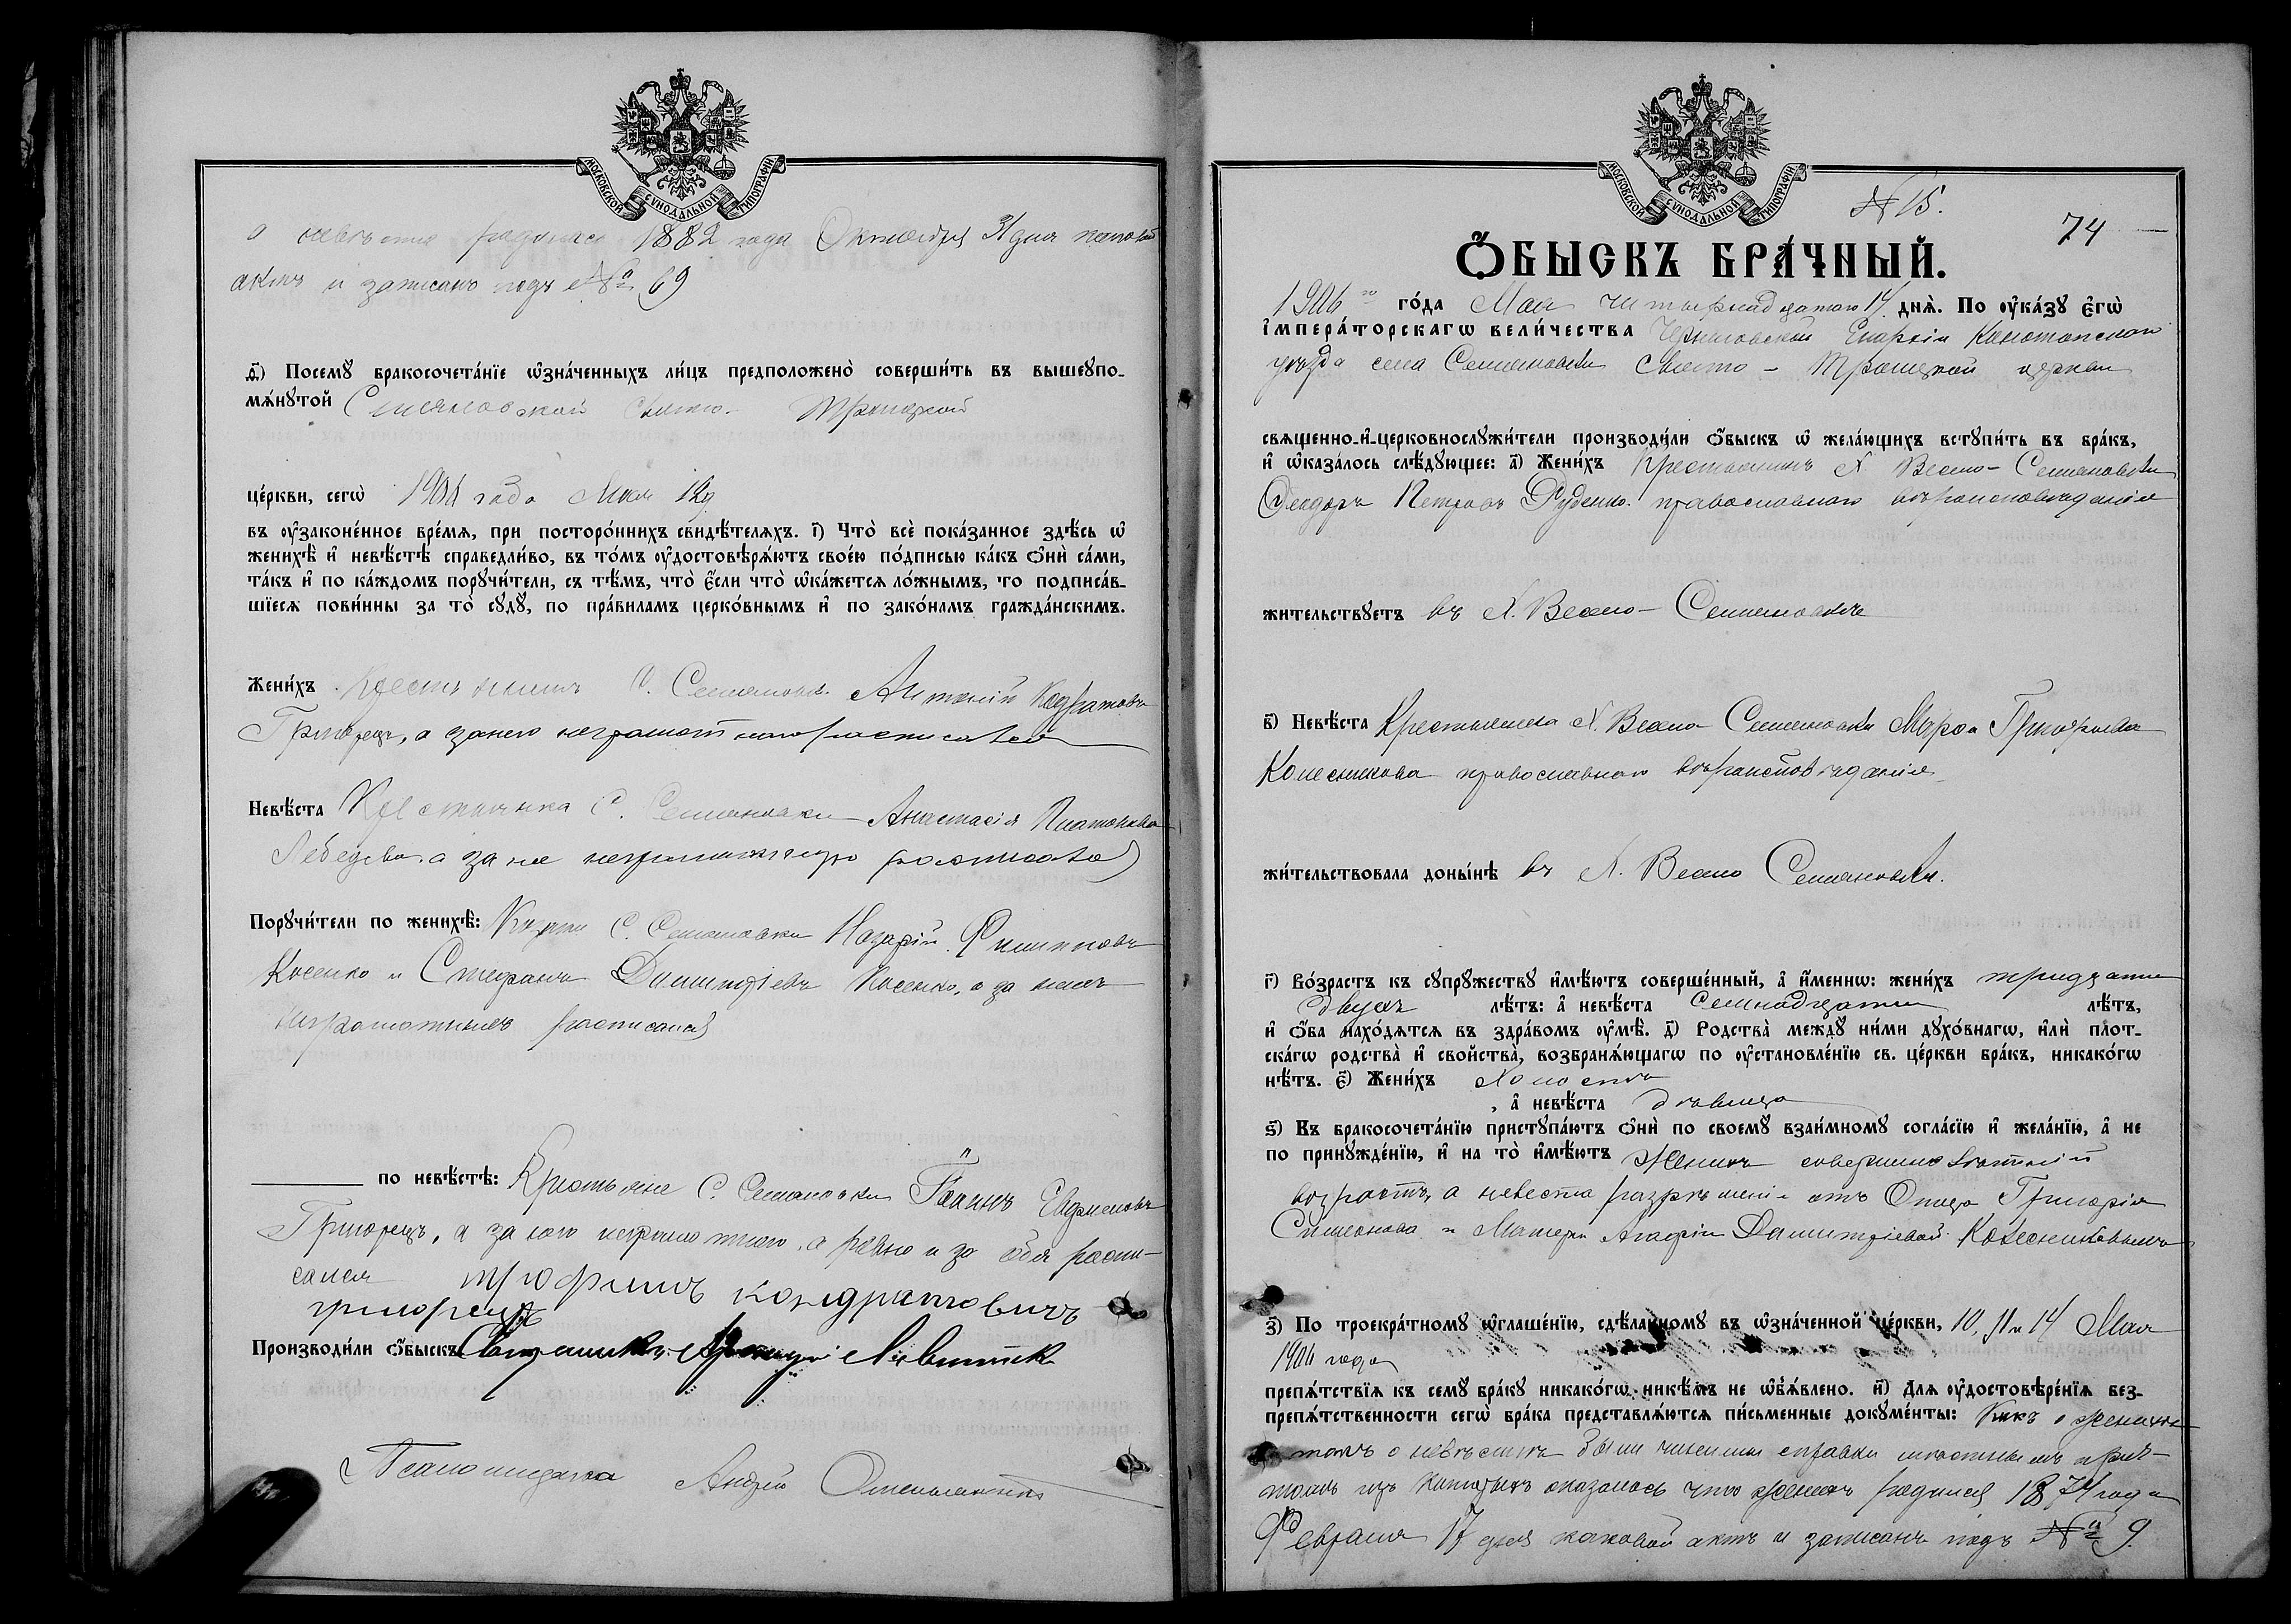 МОСКОВСКОЙ СѴНОДАЛЬНОЙ ТИПОГРАФІИ
о невѣсте родилась 1882 года Октября 31 дня каковой
актъ и записанъ подъ № 69
д҃і) Посемꙋ бракосочета́нїе ѡзна́ченныхъ ли́цъ предположено̀ соверши́ть въ вышеꙋпо-
мѧ́нꙋтой Семяновской Свято- Троицкой
це́ркви, сегѡ̀ 1906 года Мая
въ ѹ҆законе́нное вре́мѧ, при посторо́ннихъ свидѣ́телѧхъ. і҃) Что̀ всѐ пока́занное здѣ́сь ѡ҆
женихѣ̀ и҆ невѣ́стѣ справедли́во, въ то́мъ ѹ҆достовѣрѧ́ютъ свое́ю по́дписью ка́къ ѻ҆нѝ са́ми,
та́къ и҆ по ка́ждомъ порꙋчи́тели, съ тѣ́мъ, что̀ є҆́сли что̀ ѡ҆ка́жетсѧ ло́жнымъ, то подписа́в-
шїесѧ пови́нны за то̀ сꙋдꙋ̀, по пра́виламъ церко́внымъ и҆ по зако́намъ гражда́нскимъ.
Жени́хъ Крестьянинъ С. Семяновки Антоній Кодратовъ
Григорецъ, а занего неграмотнаго росписался
Невѣ́ста Крестьянка С. Семяновки Анастасія Платонова
Лебедева, а за не неграмотную росписался
Порꙋчи́тели по женихѣ̀: С. Семяновки Назарій Филиповъ
Косенко и Стефанъ Димитріевъ Косенко, а за нихъ
неграмотныхъ росписался
по невѣ́стѣ: Крестьяне С. Семяновки Евфимовъ
Григорецъ, а за него неграмотнаго, а равно и за себя роспи-
сался трофимъ кондратовичъ
григорецъ
Производи́ли ѻ҆́быскъ Священникъ Левитскій
Псаломщикъ Андрей
МОСКОВСКОЙ СѴНОДАЛЬНОЙ ТИПОГРАФІИ
№ 15.
74
Ѻ҆́БЫСКЪ БРА́ЧНЫЙ.
1906 го го́да Мая Четырнадцатаго 14 днѧ̀. По ѹ҆ка́зꙋ є҆гѡ̀
і҆мпера́торскагѡ вели́чества Черниговской Епархіи Конотопскаго
уезда села Семяновки Свято - Троицкой церкви
свѧщенно-и҆-церковнослꙋжи́тели производи́ли ѻ҆́быскъ ѡ҆ жела́ющихъ встꙋпи́ть въ бра́къ,
и҆ ѡ҆каза́лось слѣ́дꙋющее: а҃) Жени́хъ Крестьянинъ Х. Весело- Семяновки
Феодоръ Петровъ Руденко. православнаго вѣроисповѣданія
жи́тельствꙋетъ въ Х. Весело - Семяновке
в҃) Невѣ́ста Крестьянка Х. Весело Семяновки Марфа Григорьева
Колесникова православнаго вѣроисповѣданія
жи́тельствовала доны́нѣ въ Х. Весело Семяновки.
г҃) Во́зрастъ къ сꙋпрꙋ́жествꙋ и҆мѣ́ютъ соверше́нный, а҆ и҆́меннѡ: жени́хъ тридцати
двухъ лѣ́тъ: а҆ невѣ́ста Семнадцати лѣ́тъ,
и҆ ѻ҆́ба нахо́дѧтсѧ въ здра́вомъ ѹ҆мѣ̀. д҃) Родства̀ междꙋ̀ ни́ми дꙋхо́внагѡ, и҆лѝ пло́т-
ска́гѡ родства̀ и҆ свойства̀, возбранѧ́ющагѡ по ѹ҆становле́нїю св. це́ркви бра́къ, никако́гѡ
нѣ́тъ. є҃) Жени́хъ Холостъ
, а҆ невѣ́ста девица
ѕ҃) Къ бракосочета́нїю пристꙋпа́ютъ ѻ҆нѝ по своемꙋ̀ взаи́мномꙋ согла́сїю и҆ жела́нїю, а҆ не
по принꙋжде́нїю, и҆ на то̀ и҆мѣ́ютъ Женихъ совершеннолетній
возрастъ, а невеста разрѣшеніе отъ Отца Григорія
Симеонова и Матери Агафіи Димитріевой Колесниковыхъ
з҃) По троекра́тномꙋ ѡ҆глаше́нїю, сдѣ́ланномꙋ въ ѡ҆зна́ченной це́ркви, 10, 11 и 14 Мая
1906 года
препѧ́тствїѧ къ семꙋ̀ бра́кꙋ никако́гѡ никѣ́мъ не ѡ҆б̾ѧ́влено. и҃) Длѧ ѹ҆достовѣре́нїѧ без-
препѧ́тственности сегѡ̀ бра́ка представлѧ́ютсѧ пи́сьменные докꙋме́нты: Какъ о женихе
такъ о невѣстѣ были справки
изъ которыхъ оказалось что женихъ родился 1874 года
Февраля 17 дня каковой актъ и записанъ подъ № 9.